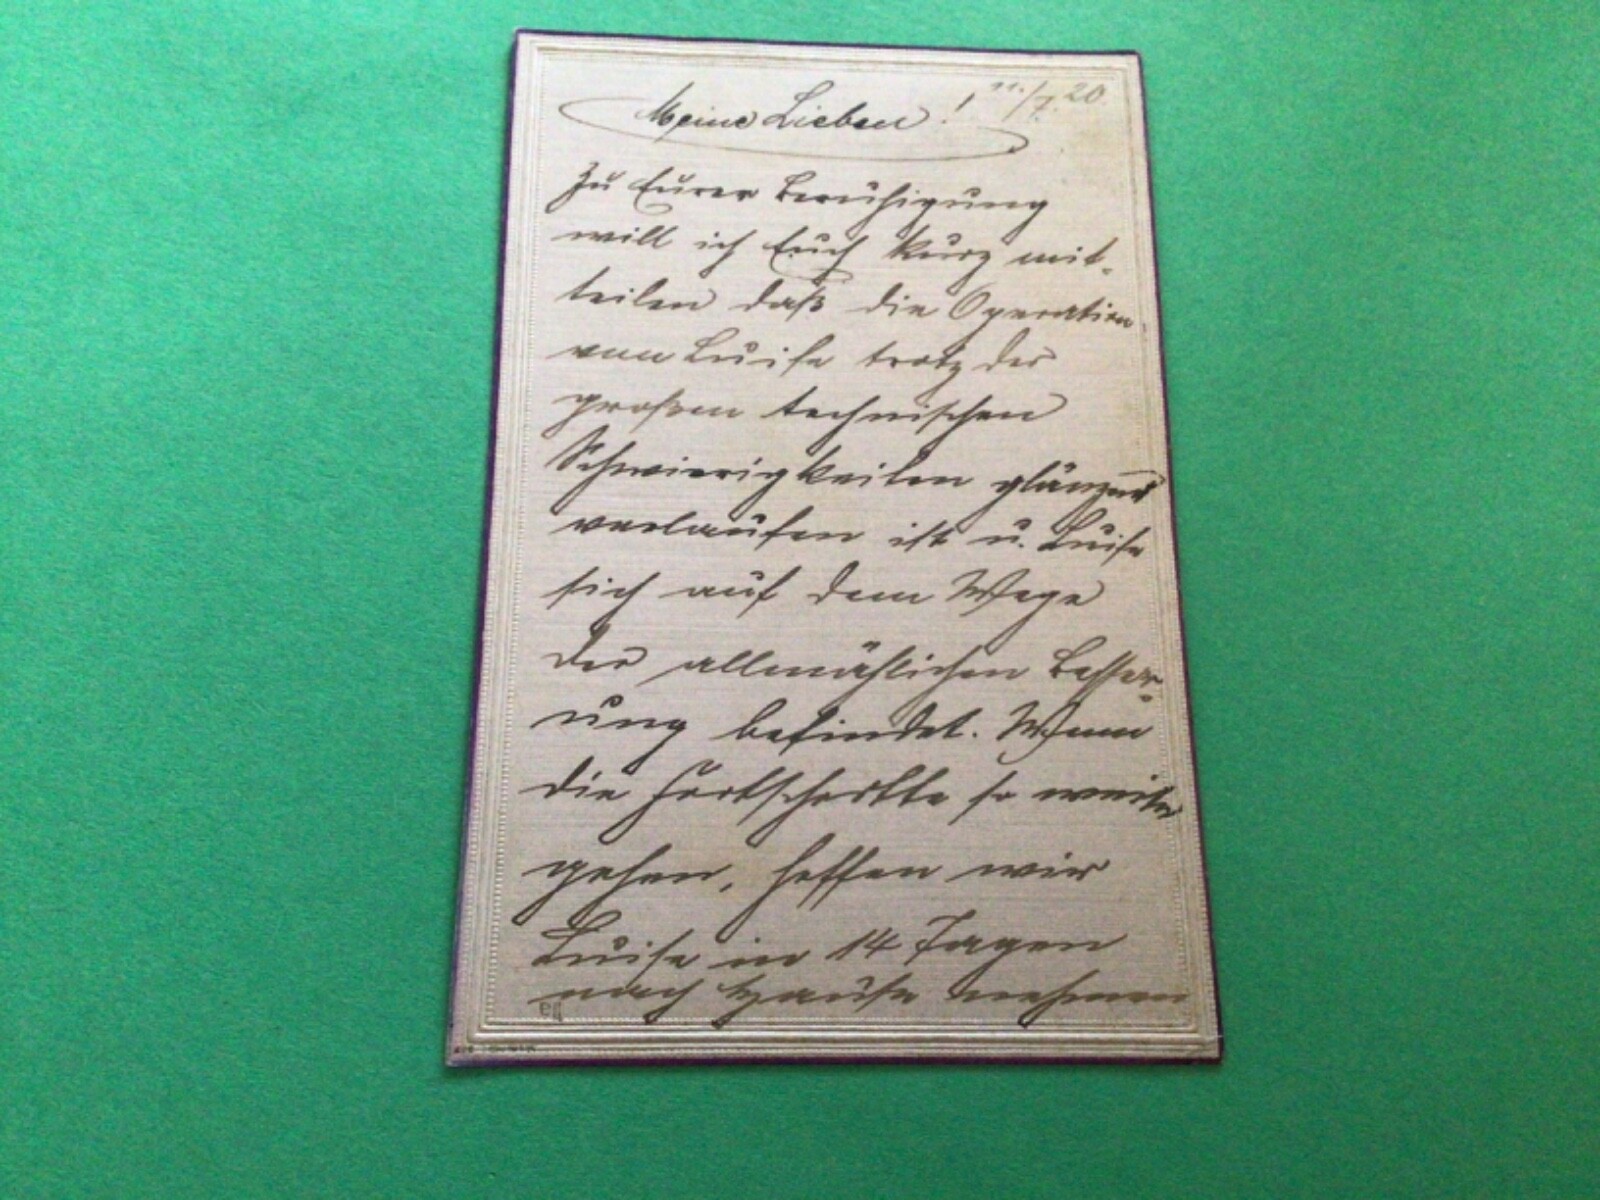 11./7. 20.
Meine Lieben!
Zu Eurer Beruhigung
will ich Euch kurz mit-
teilen daß die Operation
von Luise trotz der
großen technischen
Schwierigkeiten glänzend
verlaufen ist u. Luise
sich auf dem Wege
der allmählichen Besser-
ung befindet. Wenn
die Fortschritte so weiter
gehen, hoffen wir
Luise in 14 Tagen
nach Hause nehmen